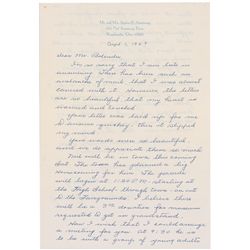 Mr. and Mrs. Stephen Armstrong
Wapakoneta, Ohio 45895
Sept. 1, 1969
Dear Mr.
I'm so sorry that I am late in
answering. There has been such an
avalanche of mail that I was almost
covered with it. However, the letters
are so beautiful that my heart is
warmed and exalted.
Your letter was held up for me
to answer quickly, then it slipped
my mind.
Your words were so beautiful
and we do appreciate them so much.
Neil will be in town this coming
Sat. The town has planned a big
Homecoming for him. The parade
will begin at 1:30 P.M. starting at
the High School through town - on out
to the Fairgrounds. I believe there
will be a donation for measure
requested to get in grandstand.
Now I wish that I could arrange
a meeting for you at 9:30. He is
to be with a group of young adults